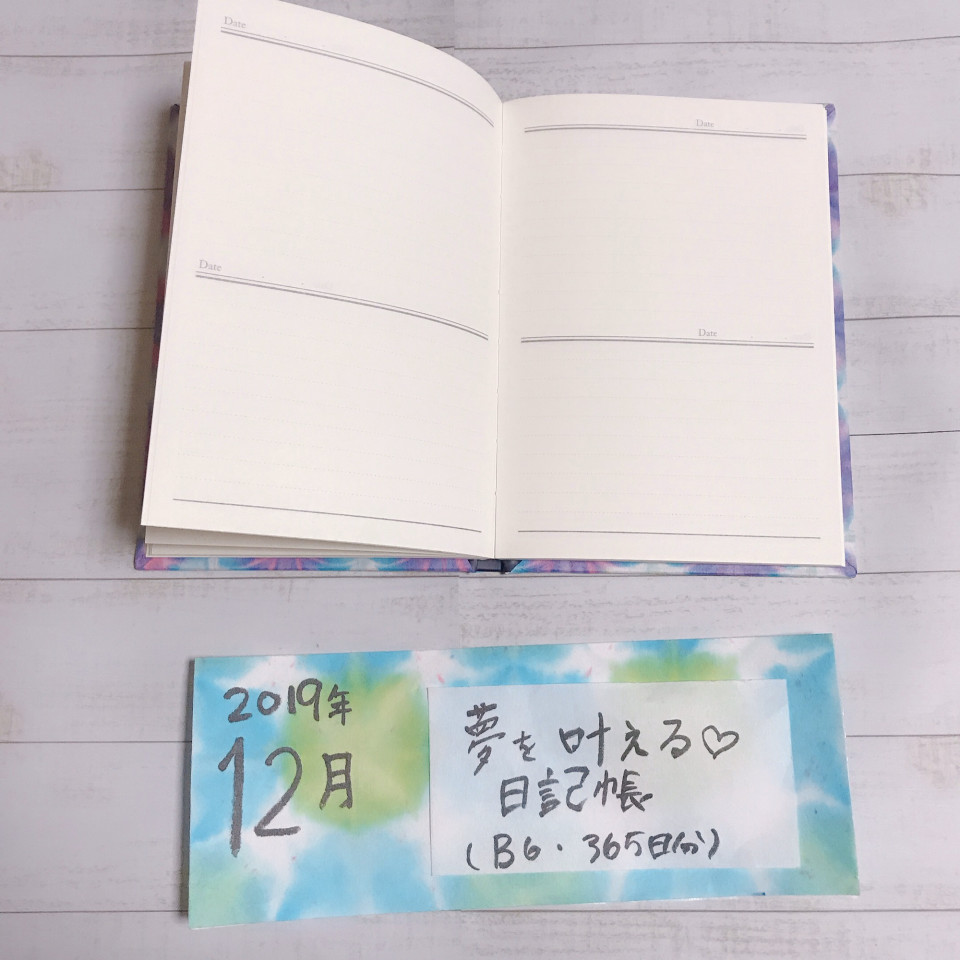 Date
Date
Date
Date
2019年
12月
夢を叶える♡
日記帳
(B6・365日分)